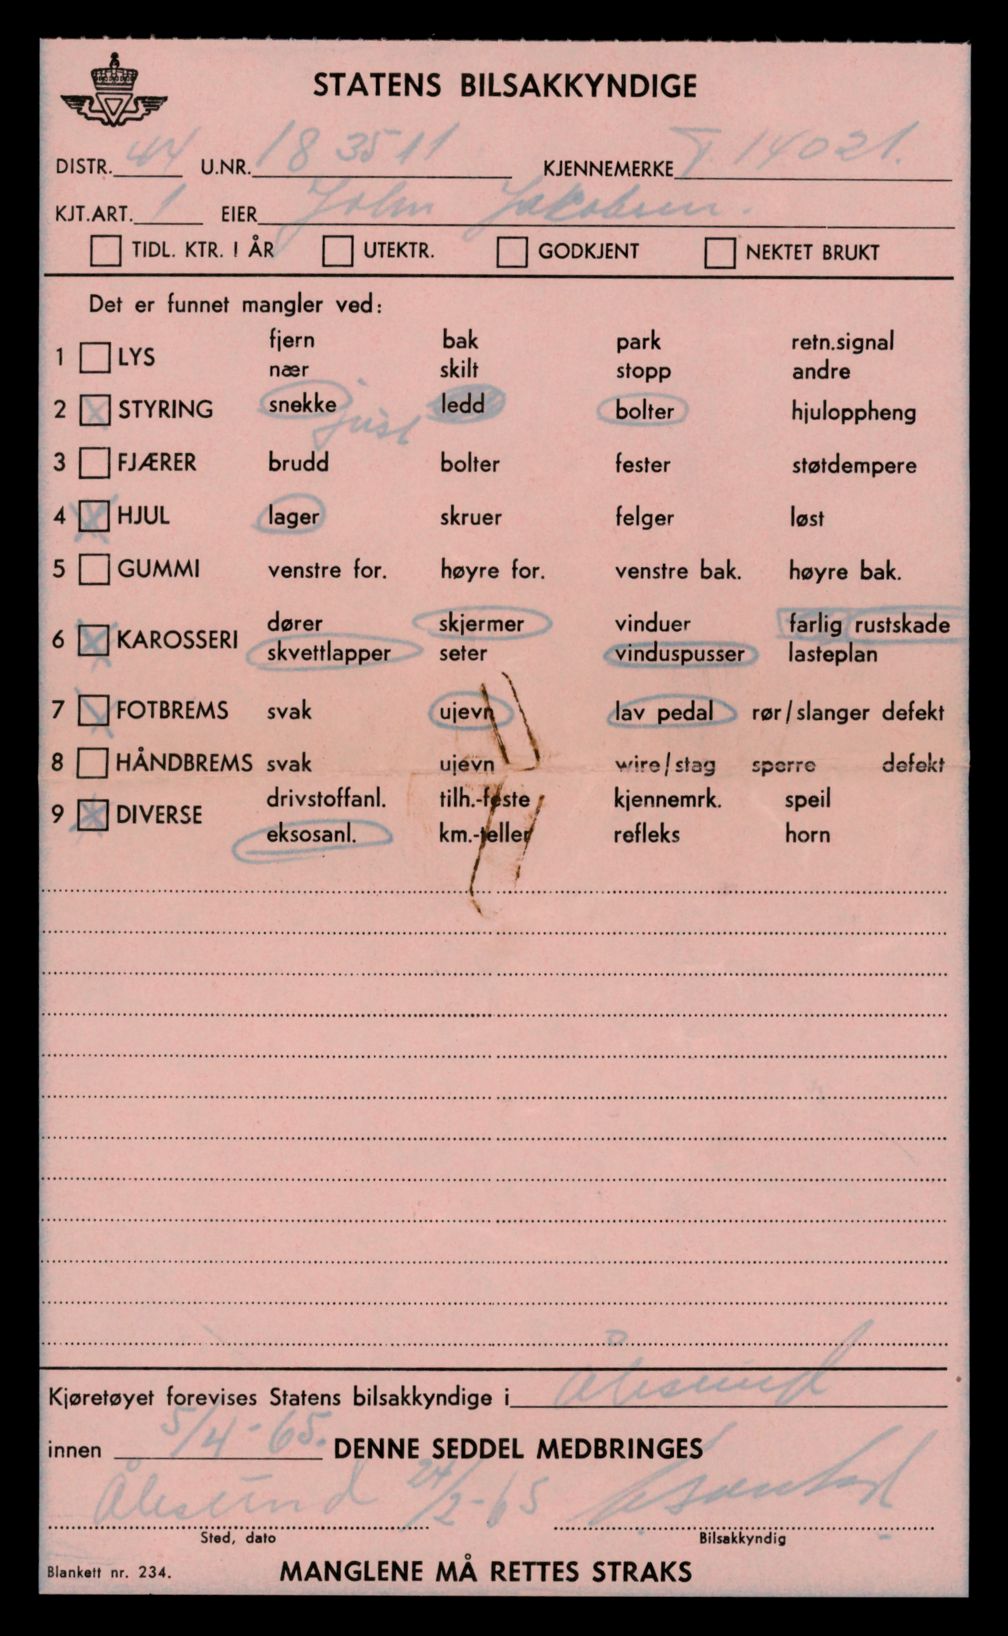 STATENS BILSAKKYNDIGE
DISTR. 44 U.NR. 183511 KJENNEMERKE T 14021.
KJT.ART. 1 EIER John Jakobsen.
TIDL. KTR. I ÅR UTEKTR. GODKJENT NEKTET BRUKT
Det er funnet mangler ved:
fjern bak park retn.signal
1 LYS
nær skilt stopp andre
2 STYRING snekke ledd bolter hjuloppheng
just
3 FJÆRER brudd bolter fester støtdempere
4 HJUL lager skruer felger løst
5 GUMMI venstre for. høyre for. venstre bak. høyre bak.
dører skjermer vinduer farlig rustskade
6 KAROSSERI
skvettlapper seter vinduspusser lasteplan
7 FOTBREMS svak ujevn lav pedal rør/slanger defekt
8 HÅNDBREMS svak ujevn wire/stag sperre defekt
drivstoffanl. tilh.-feste kjennemrk. speil
9 DIVERSE
eksosanl. km.-teller refleks horn
Kjøretøyet forevises Statens bilsakkyndige i Ålesund
innen 5/4-65. DENNE SEDDEL MEDBRINGES
Ålesund 24/2-65
Sted, dato Bilsakkyndig
Blankett nr. 234. MANGLENE MÅ RETTES STRAKS